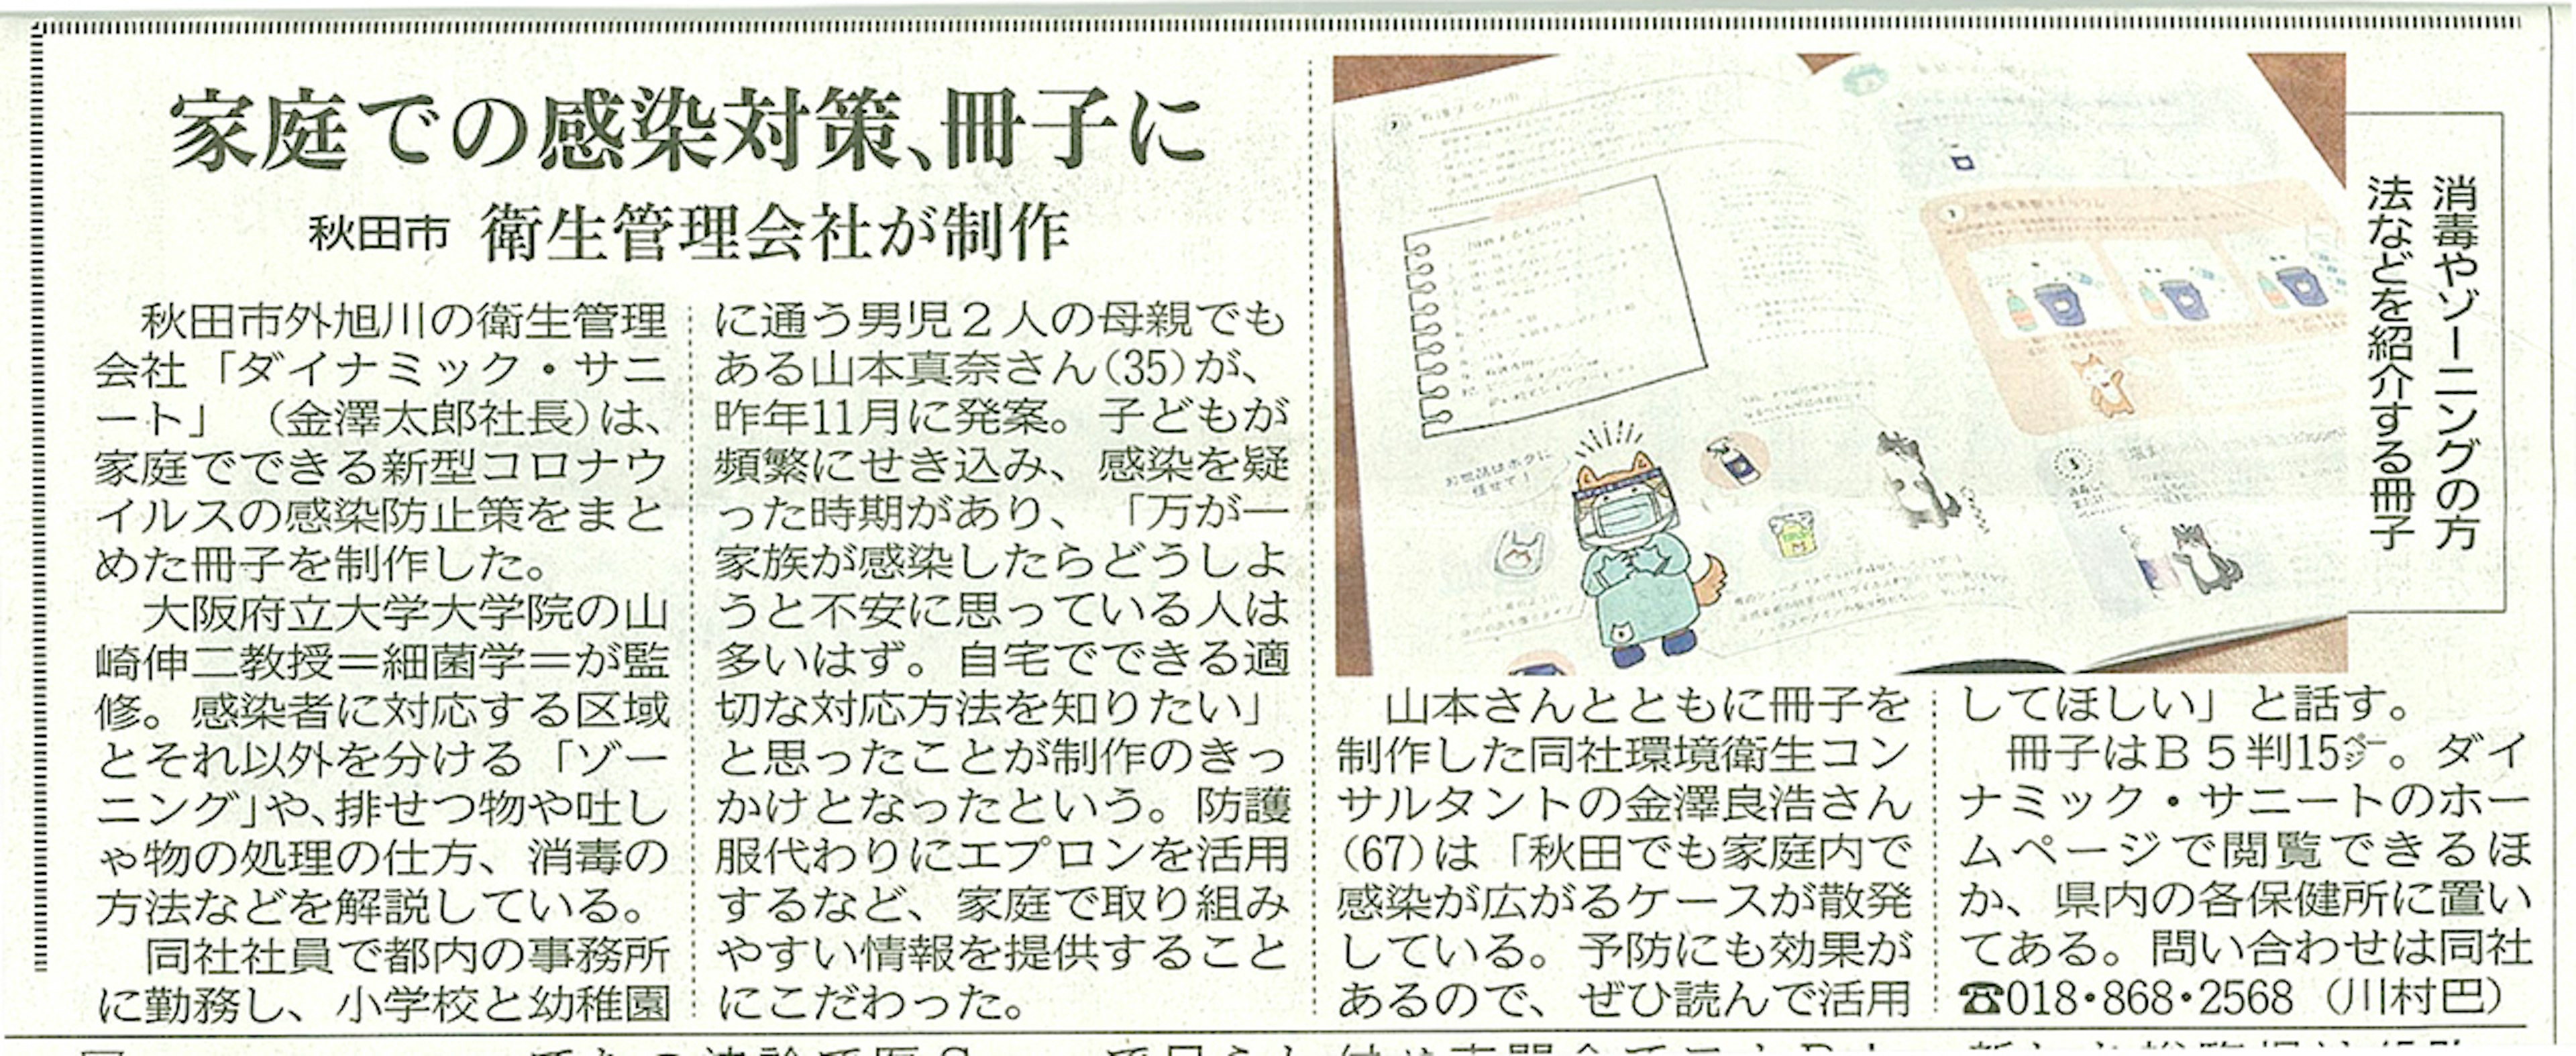 家庭での感染対策、冊子に
秋田市 衛生管理会社が制作
秋田市外旭川の衛生管理
会社「ダイナミック・サニ
ート」（金澤太郎社長）は、
家庭でできる新型コロナウ
イルスの感染防止策をまと
めた冊子を制作した。
大阪府立大学大学院の山
崎伸二教授＝細菌学＝が監
修。感染者に対応する区域
とそれ以外を分ける「ゾー
ニング」や、排せつ物や吐し
ゃ物の処理の仕方、消毒の
方法などを解説している。
同社社員で都内の事務所
に勤務し、小学校と幼稚園
に通う男児２人の母親でも
ある山本真奈さん（35）が、
昨年11月に発案。子どもが
頻繁にせき込み、感染を疑
った時期があり、「万が一
家族が感染したらどうしよ
うと不安に思っている人は
多いはず。自宅でできる適
切な対応方法を知りたい」
と思ったことが制作のきっ
かけとなったという。防護
服代わりにエプロンを活用
するなど、家庭で取り組み
やすい情報を提供すること
にこだわった。
お世話はボクに
任せて！
消毒やゾーニングの方
法などを紹介する冊子
山本さんとともに冊子を
制作した同社環境衛生コン
サルタントの金澤良浩さん
（67）は「秋田でも家庭内で
感染が広がるケースが散発
している。予防にも効果が
あるので、ぜひ読んで活用
してほしい」と話す。
冊子はＢ５判15㌻。ダイ
ナミック・サニートのホー
ムページで閲覧できるほ
か、県内の各保健所に置い
てある。問い合わせは同社
☎018・868・2568（川村巴）